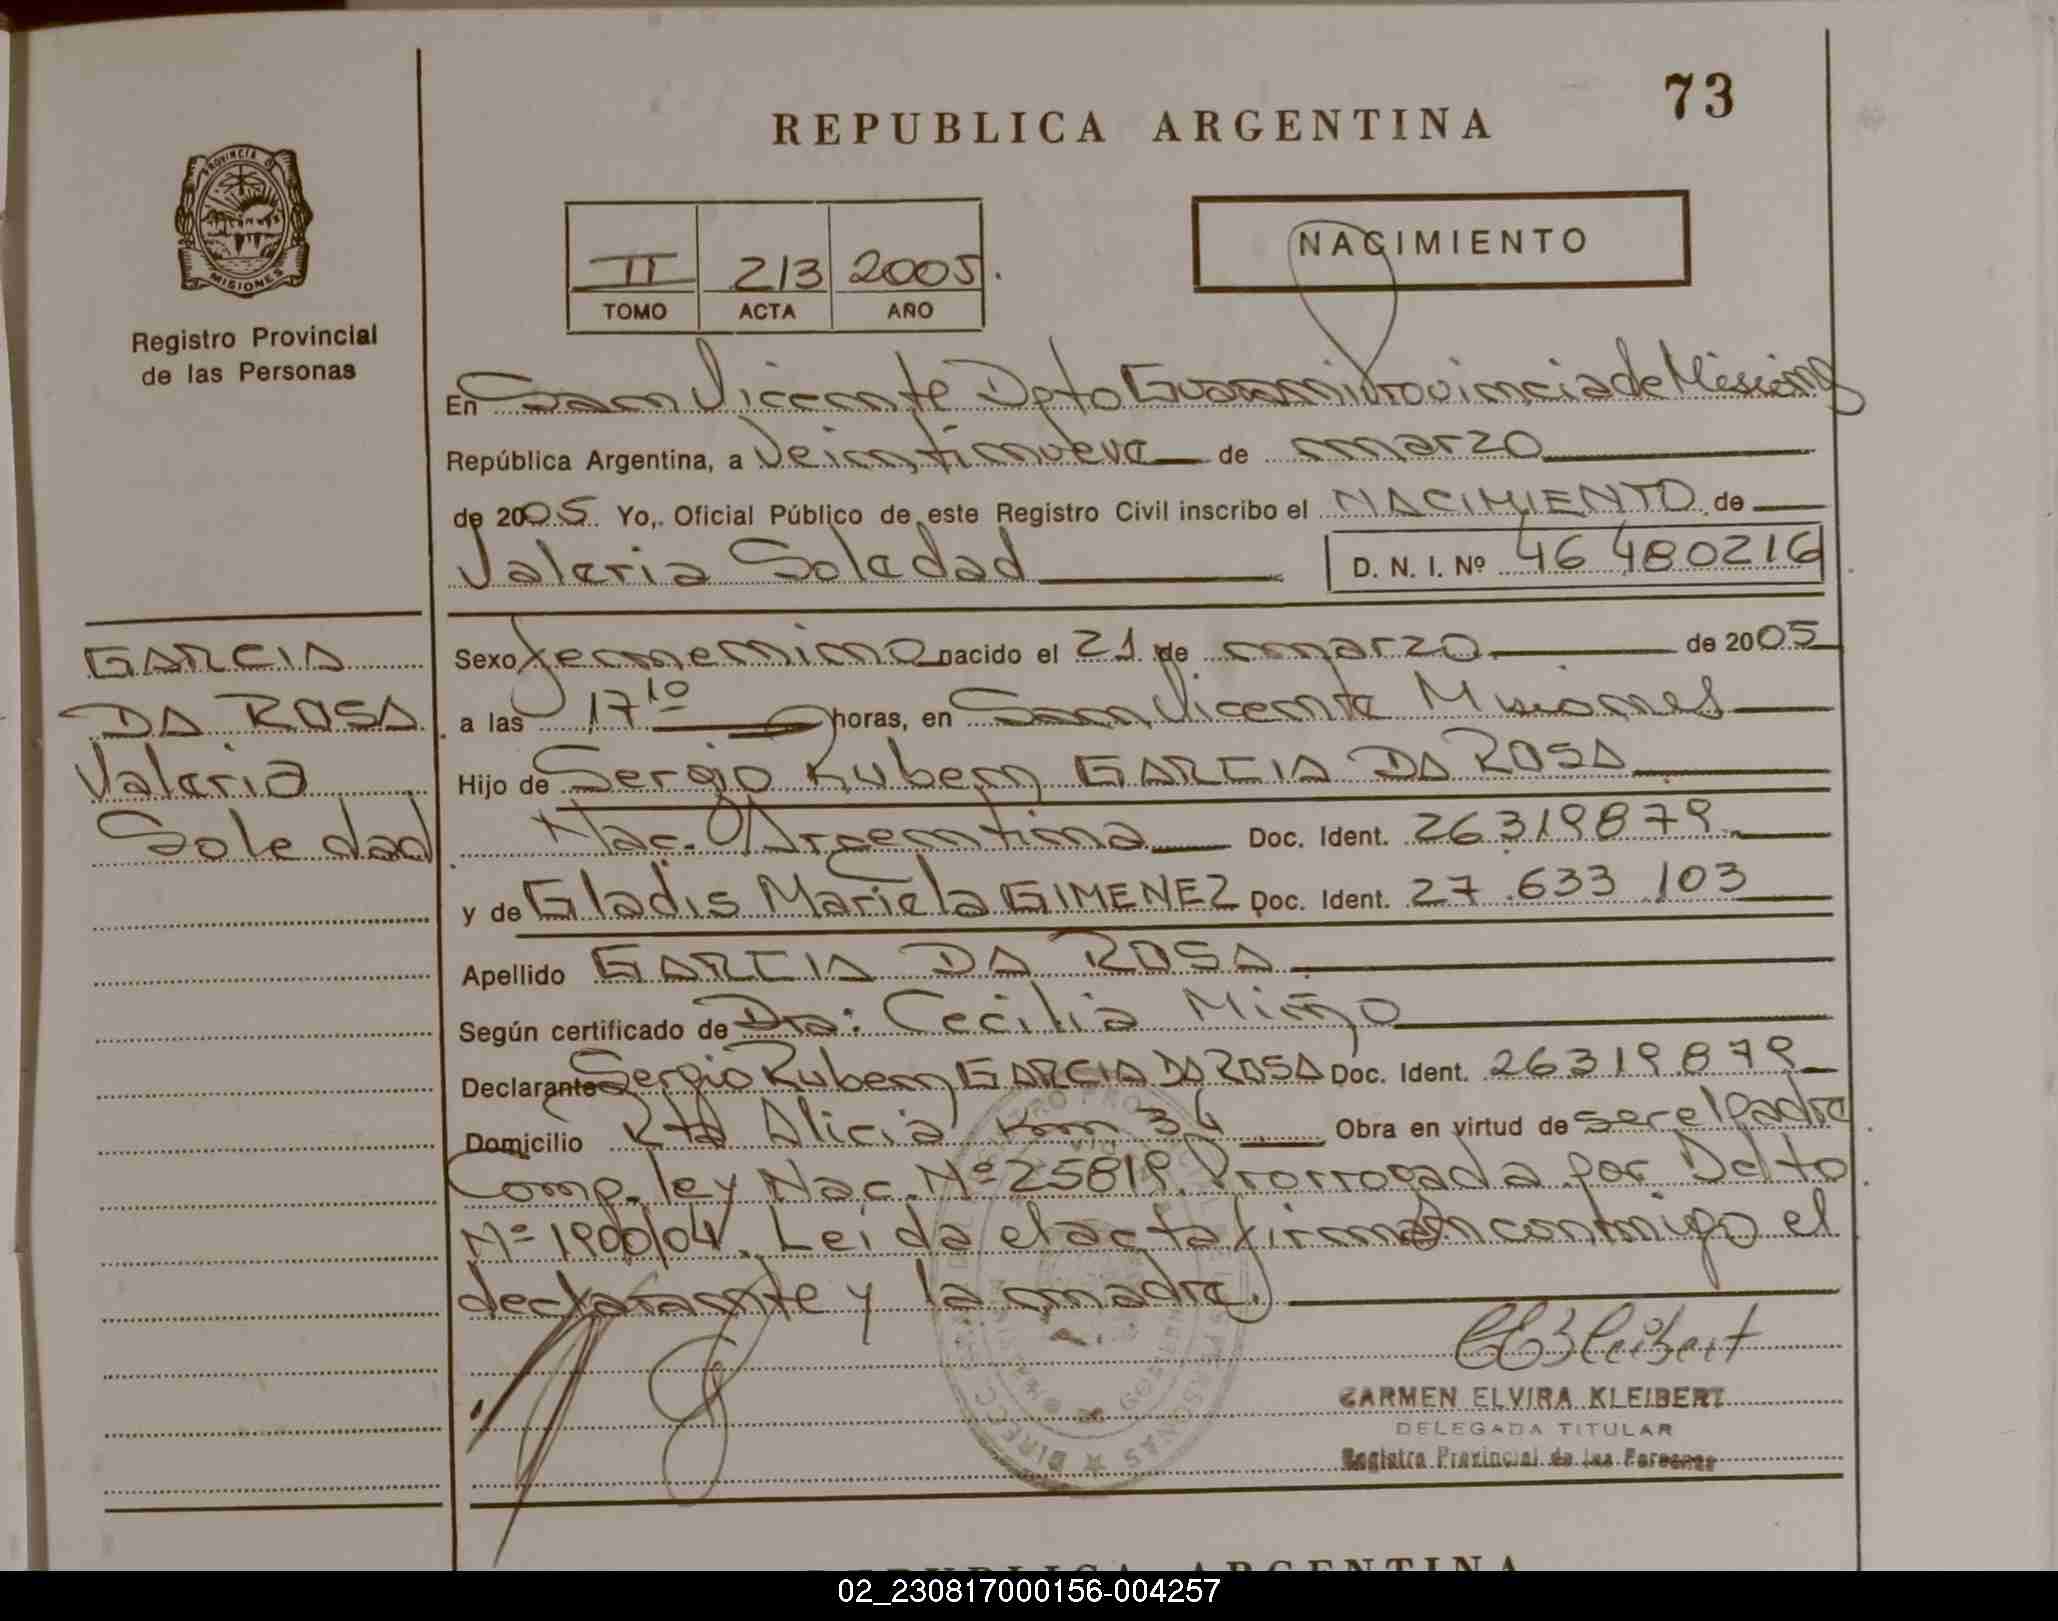 73
REPUBLICA ARGENTINA
PROVINCIA D
MISIONES
Registro Provincial
de las Personas
II 213 2005.
TOMO ACTA AÑO
NACIMIENTO
En San Vicente Dpto Guarani Provincia de Misiones
República Argentina, a Veintinueve de marzo
de 2005 Yo, Oficial Público de este Registro Civil inscribo el NACIMIENTO de
Valeria Soledad D. N. I. Nº 46 480216
GARCIA
DA ROSA
Valeria
Soledad
Sexo femenino nacido el 21 de marzo de 2005
a las 17 10 horas, en San Vicente Misiones
Hijo de Sergio Ruben GARCIA DA ROSA
Nac. Argentina Doc. Ident. 26319879
y de Gladis Mariela GIMENEZ Doc. Ident. 27 633 103
Apellido GARCIA DA ROSA
Según certificado de Dra: Cecilia Miño
Declarante Sergio Ruben GARCIA DA ROSA Doc. Ident. 26319879
Domicilio Rta Alicia Km 34 Obra en virtud de ser el Padre
Comp. ley Nac. Nº 25819 Prorrogada por Dcto
Nº 1900/04. Leida el acta firman conmigo el
declarante y la madre.
CEKleibert
CARMEN ELVIRA KLEIBERT
DELEGADA TITULAR
Registro Provincial de las Personas
REPUBLICA ARGENTINA
02_230817000156-004257